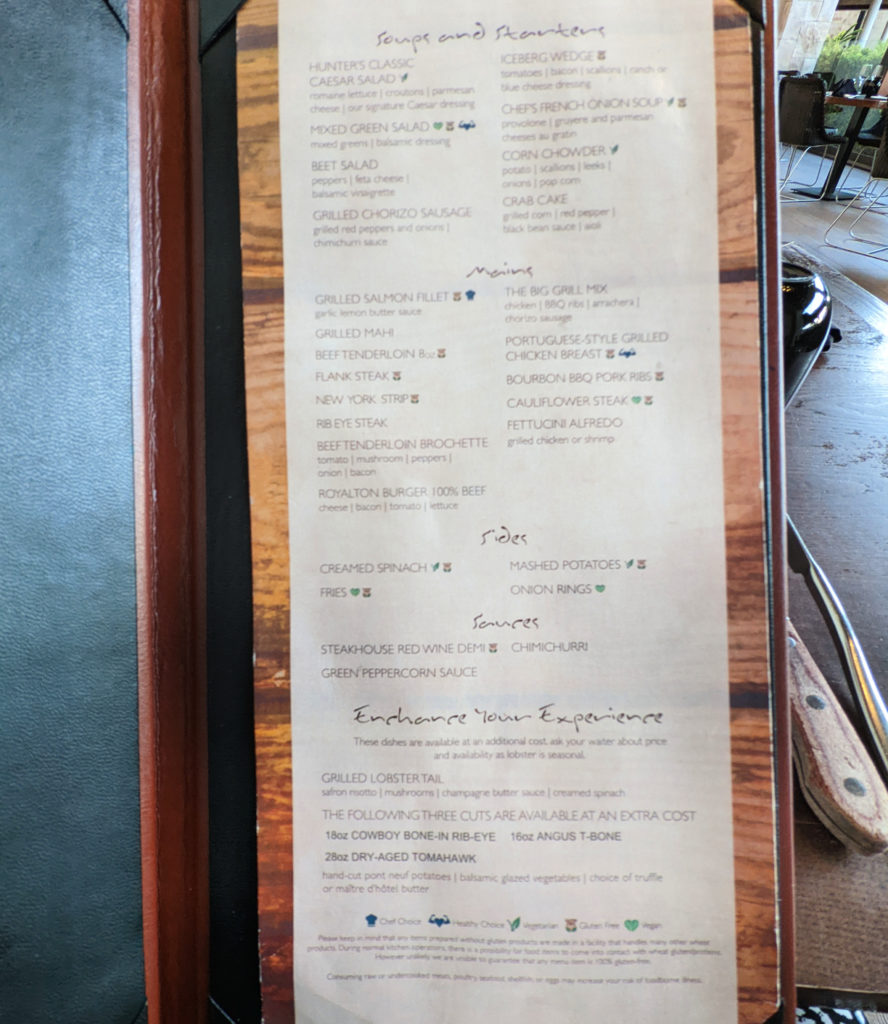 Soups and Starters
HUNTER'S CLASSIC
CAESAR SALAD
romaine lettuce | croutons | parmesan
cheese | our signature Caesar dressing
MIXED GREEN SALAD
mixed greens | balsamic dressing
BEET SALAD
peppers | feta cheese |
balsamic vinaigrette
GRILLED CHORIZO SAUSAGE
grilled red peppers and onions |
chimichurri sauce
ICEBERG WEDGE
tomatoes | bacon | scallions | ranch or
blue cheese dressing
CHEF'S FRENCH ONION SOUP
provolone | gruyere and parmesan
cheeses au gratin
CORN CHOWDER
potato | scallions | leeks |
onions | pop corn
CRAB CAKE
grilled corn | red pepper |
black bean sauce | aioli
Mains
GRILLED SALMON FILLET
garlic lemon butter sauce
GRILLED MAHI
BEEF TENDERLOIN 8oz
FLANK STEAK
NEW YORK STRIP
RIB EYE STEAK
BEEF TENDERLOIN BROCHETTE
tomato | mushroom | peppers |
onion | bacon
ROYALTON BURGER 100% BEEF
cheese | bacon | tomato | lettuce
THE BIG GRILL MIX
chicken | BBQ ribs | arrachera |
chorizo sausage
PORTUGUESE-STYLE GRILLED
CHICKEN BREAST
BOURBON BBQ PORK RIBS
CAULIFLOWER STEAK
FETTUCINI ALFREDO
grilled chicken or shrimp
Sides
CREAMED SPINACH
FRIES
MASHED POTATOES
ONION RINGS
Sauces
STEAKHOUSE RED WINE DEMI
CHIMICHURRI
GREEN PEPPERCORN SAUCE
Enchance Your Experience
These dishes are available at an additional cost, ask your waiter about price
and availability as lobster is seasonal.
GRILLED LOBSTER TAIL
safron risotto | mushrooms | champagne butter sauce | creamed spinach
THE FOLLOWING THREE CUTS ARE AVAILABLE AT AN EXTRA COST
18oz COWBOY BONE-IN RIB-EYE 16oz ANGUS T-BONE
28oz DRY-AGED TOMAHAWK
hand-cut pont neuf potatoes | balsamic glazed vegetables | choice of truffle
or maître d'hôtel butter
Chef Choice Healthy Choice Vegetarian Gluten Free Vegan
Please keep in mind that any items prepared without gluten products are made in a facility that handles many other wheat
products. During normal kitchen operations, there is a possibility for food items to come into contact with wheat gluten/proteins.
However unlikely we are unable to guarantee that any menu item is 100% gluten-free.
Consuming raw or undercooked meats, poultry, seafood, shellfish, or eggs may increase your risk of foodborne illness.